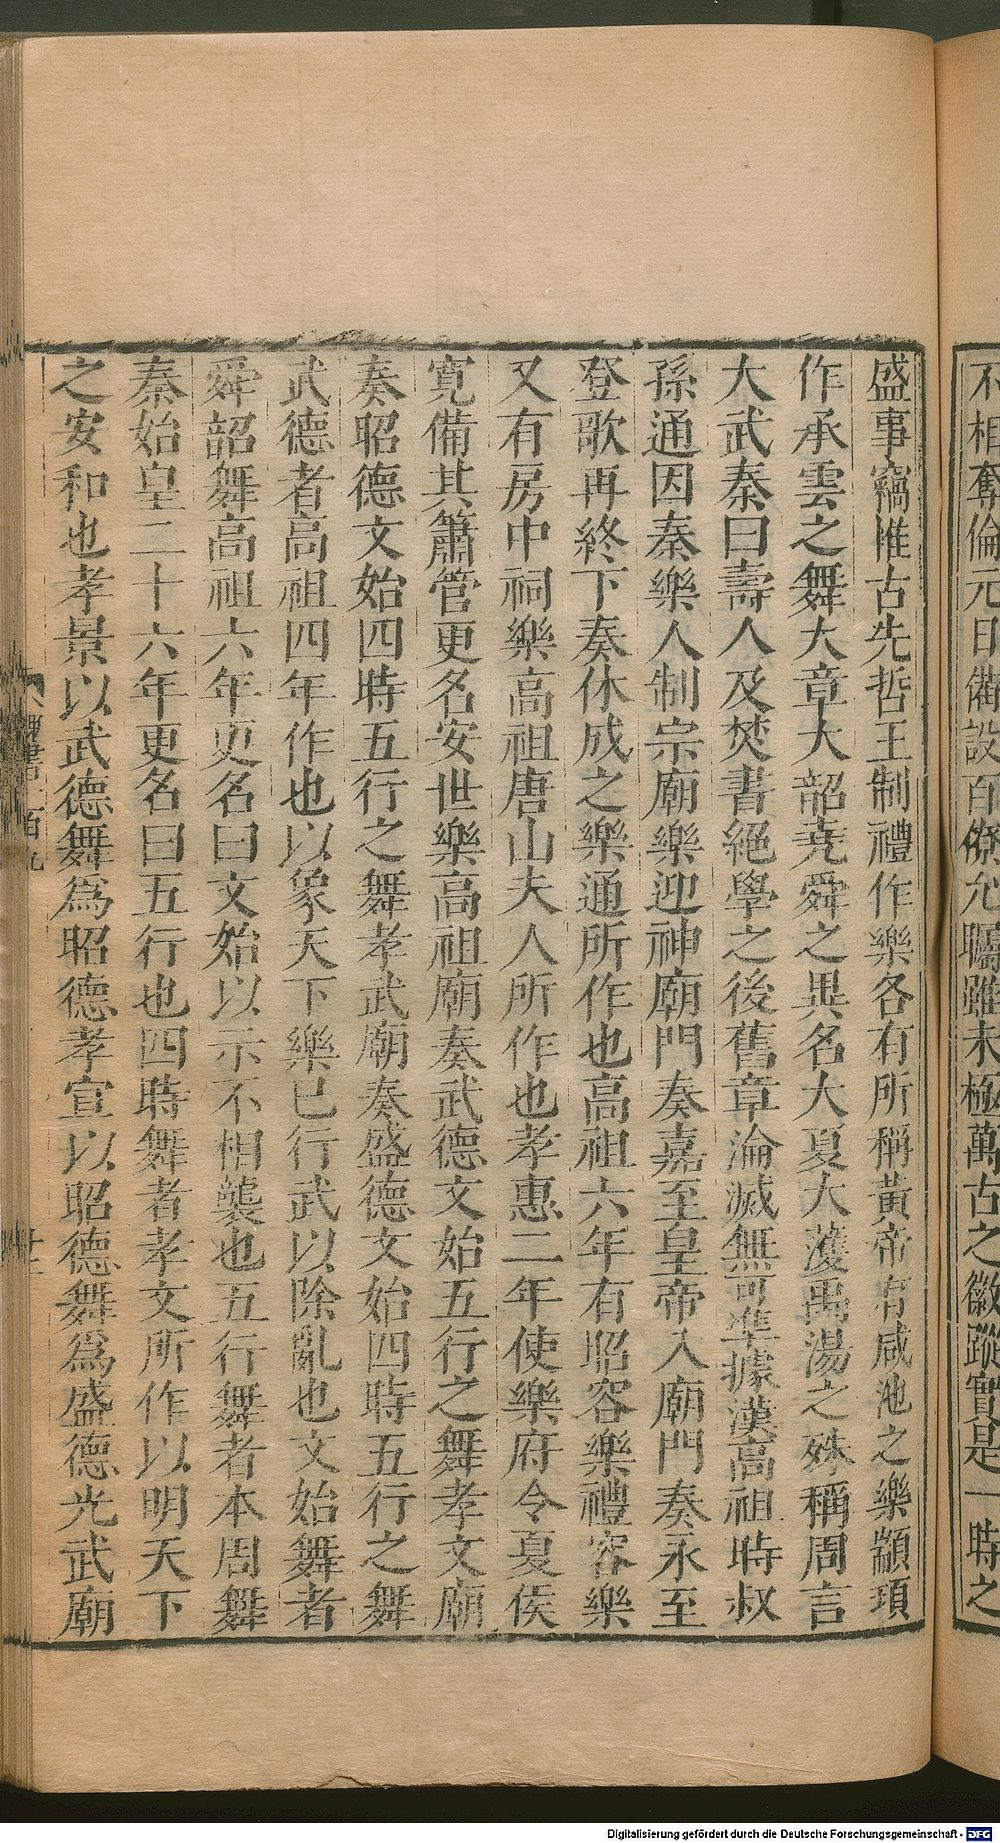 不相奪倫元日備設百僚允矚雖未極萬古之徽蹤實是一時之
盛事竊惟古先哲王制禮作樂各有所稱黃帝有咸池之樂顓頊
作承雲之舞大章大韶堯舜之異名大夏大濩禹湯之殊稱周言
大武秦曰壽人及焚書絕學之後舊章淪滅無可準據漢高祖時叔
孫通因秦樂人制宗廟樂迎神廟門奏嘉至皇帝入廟門奏永至
登歌再終下奏休成之樂通所作也高祖六年有昭容樂禮容樂
又有房中祠樂高祖唐山夫人所作也孝惠二年使樂府令夏侯
寬備其簫管更名安世樂高祖廟奏武德文始五行之舞孝文廟
奏昭德文始四時五行之舞孝武廟奏盛德文始四時五行之舞
武德者高祖四年作也以象天下樂已行武以除亂也文始舞者
舜韶舞高祖六年更名曰文始以示不相襲也五行舞者本周舞
秦始皇二十六年更名曰五行也四時舞者孝文所作以明天下
之安和也孝景以武德舞爲昭德孝宣以昭德舞爲盛德光武廟
魏書一百九
Digitalisierung gefördert durch die Deutsche Forschungsgemeinschaft - DFG